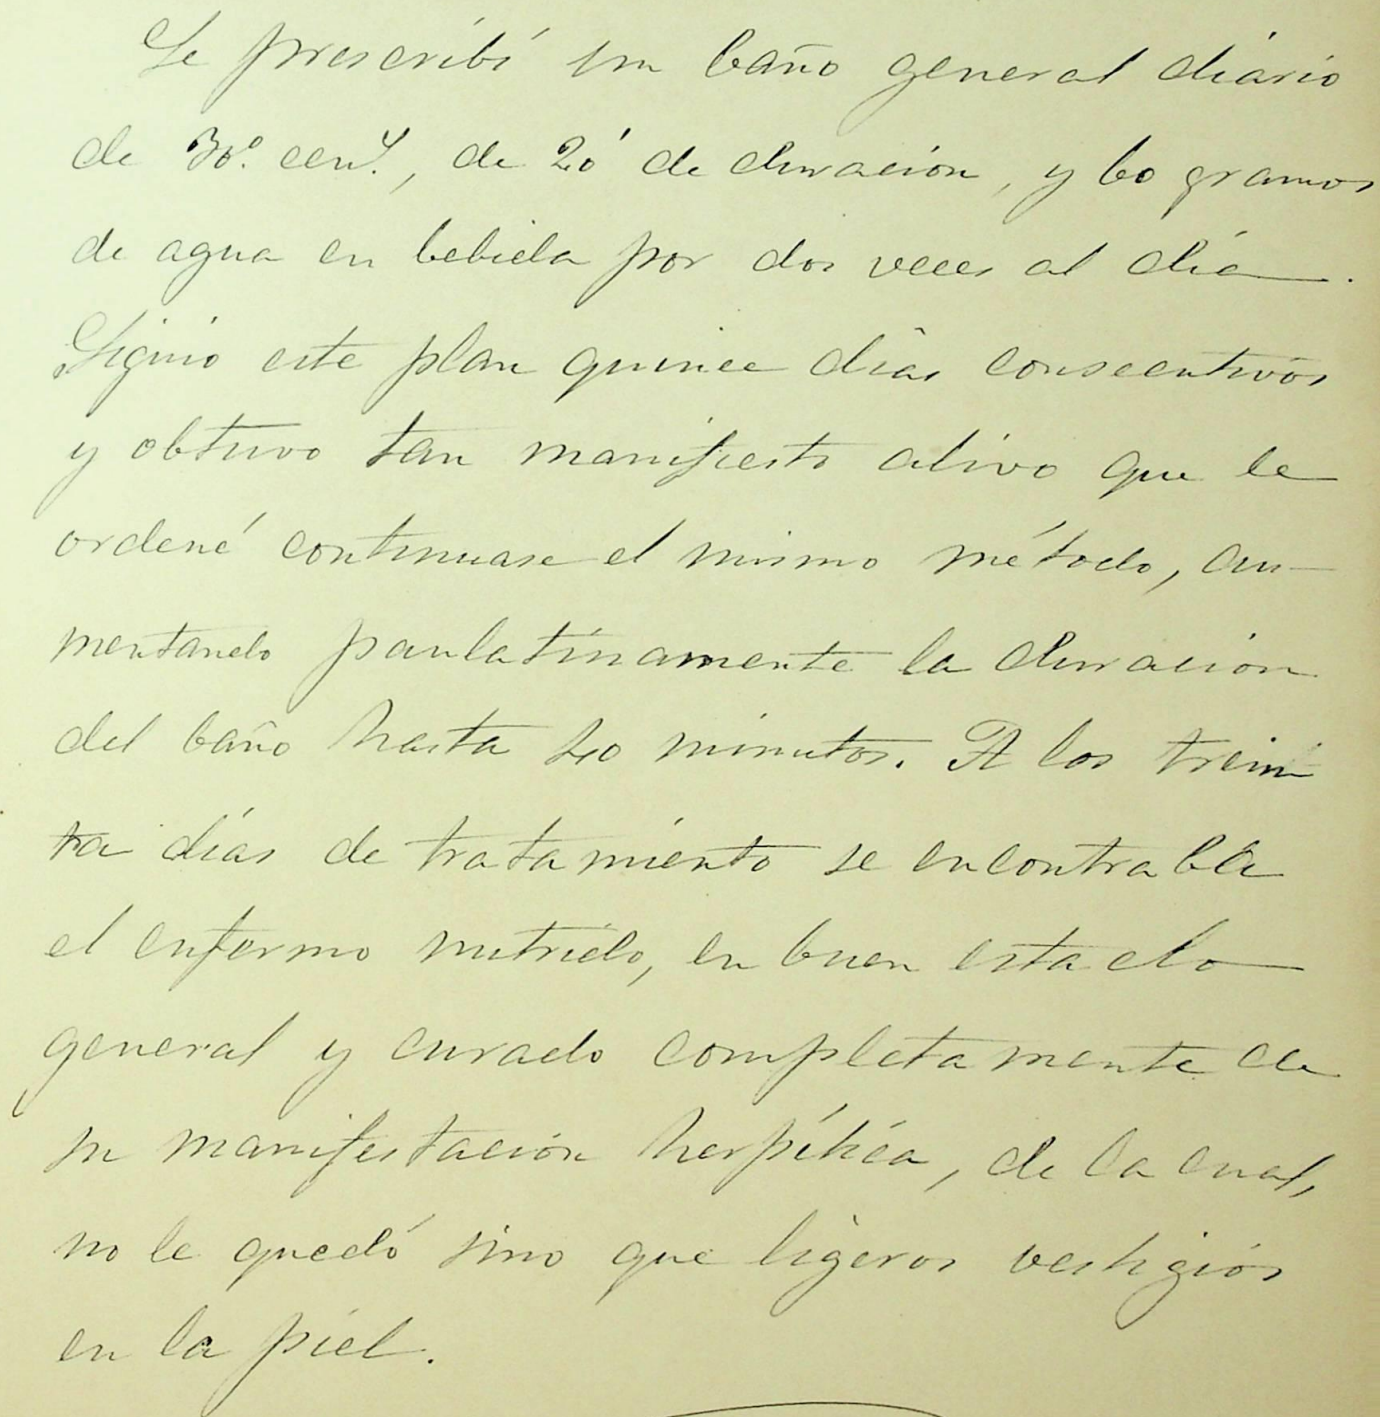 Le prescribí un baño general diario
de 30º cent., de 20' de duración, y 60 gramos
de agua en bebida por dos veces al día.
Siguió este plan quince días consecutivos
y obtuvo tan manifiesto alivo que le
ordené continuase el mismo método, au-
mentando paulatinamente la duración
del baño hasta 40 minutos. A los trein
ta días de tratamiento se encontraba
el enfermo nutrido, en buen estado
general y curado completamente de
su manifestación herpética, de la cual,
no le quedó sino que ligeros vestigios
en la piel.